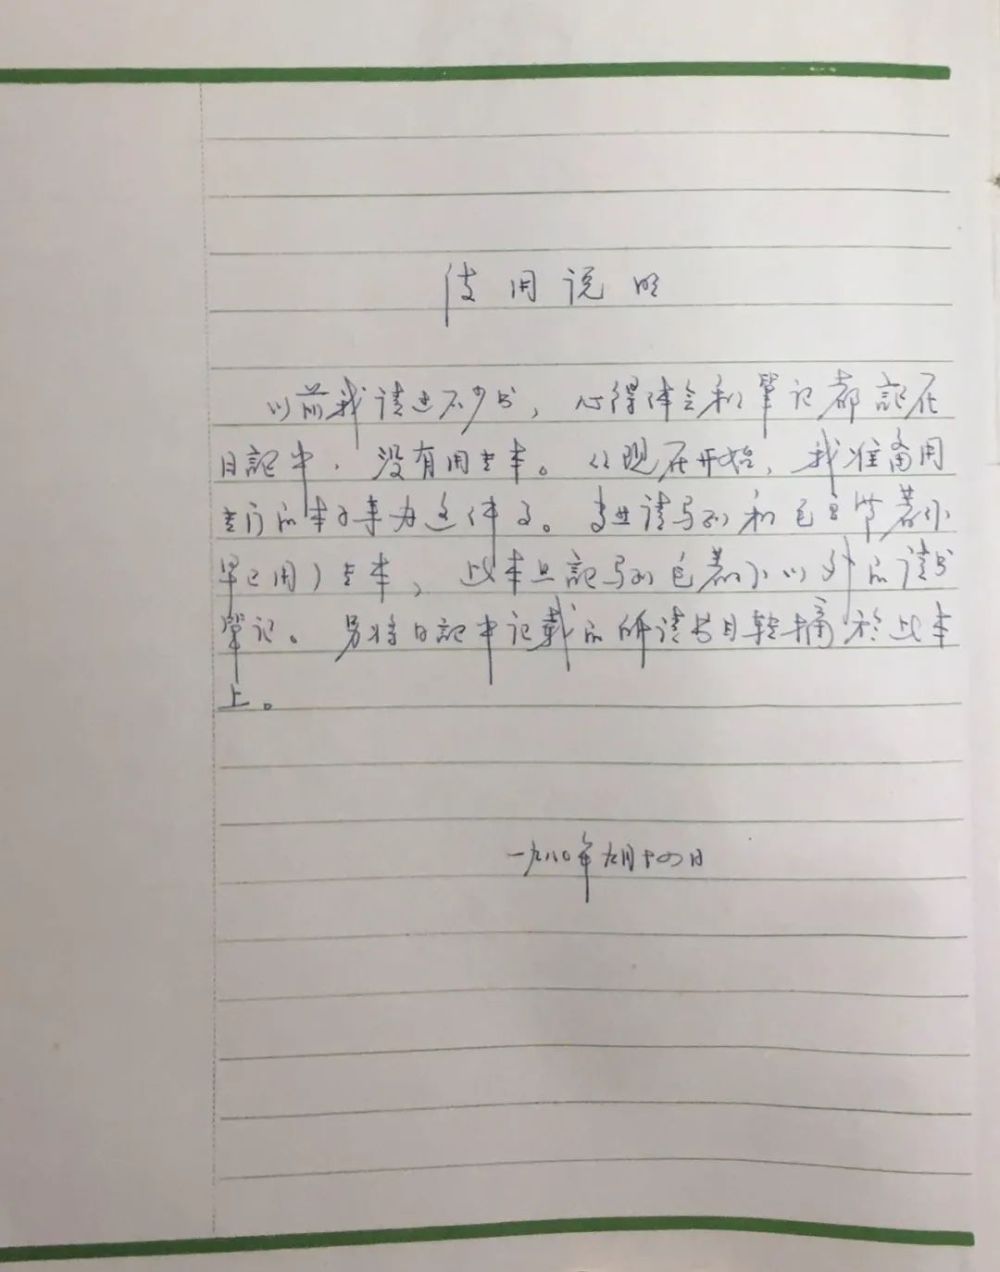 使用说明
以前我读过不少书，心得体会和笔记都記在
日記中，没有用专本。从现在开始，我准备用
专门的本子来办这件事。学习读马列和毛主席著作
早已用了专本，此本只記马列毛著作以外的读书
筆记。另将日記中记载的所读书目转摘於此本
上。
一九八〇年九月十四日